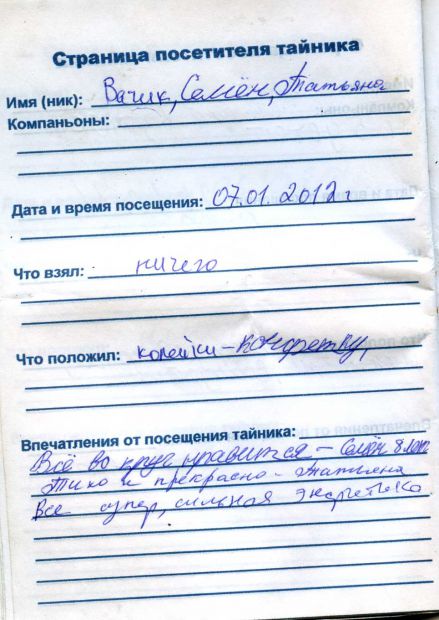 Страница посетителя тайника
Имя (ник): Вачик, Семён, Татьяна
Компаньоны:
Дата и время посещения: 07.01.2012 г
Что взял: ничего
Что положил: копейки – конфетку,
Впечатления от посещения тайника:
Всё во круг нравится – Семён 8 лет
Тихо и прекрасно – Татьяна
Все супер, сильная энергетика